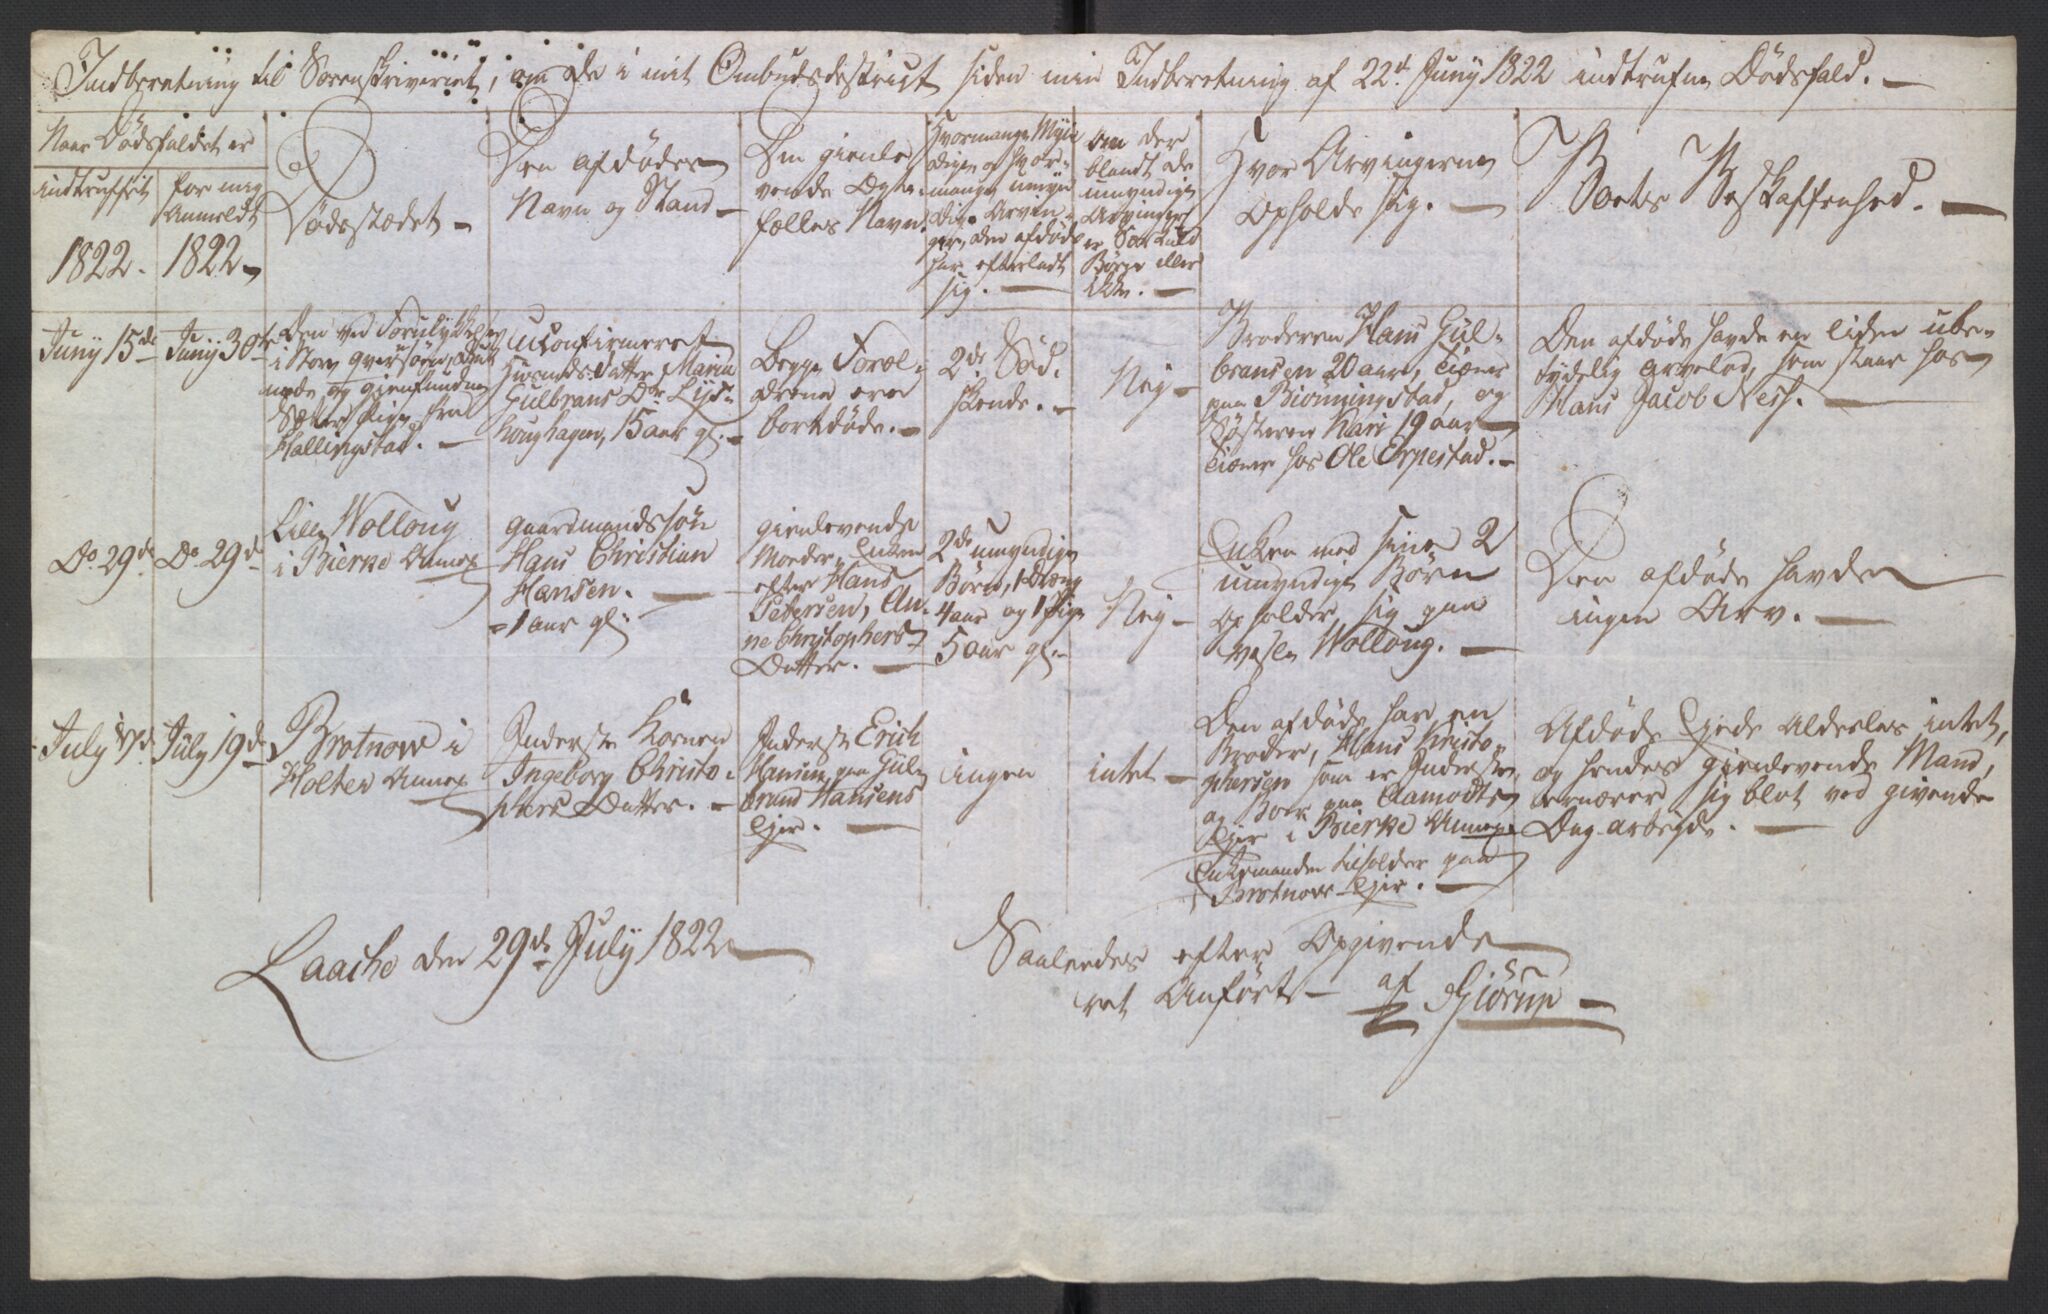 Indberetning til Sorenskriveriet, om de i mit Ombudsdistrict siden min Indberetning af 22d Juny 1822 indtrufne Dødsfald. —
Naar Dødsfaldet er
indtruffet
1822.
for mig
Anmeldt
1822
Dødsstædet —
Den afdødes
Navn og Stand —
Den gienle-
vende Egte-
fælles Navn.
Hvormange Myn-
dige og hvor-
mange umyn-
dige Arvin-
ger, den afdøde
har efterladt
sig. —
Om der
blandt de
umyndige
Arvinger
er
Børn eller
ikke. —
Hvor Arvingerne
Opholde sig. —
Boets Beskaffenhed. —
Juny 15de
Juny 30te
Den ved
i Stor
og gienfundne
Pige fra
Hallingstad. —
Uconfirmeret
Huusmds. Datter Maria
Gulbrans Dr
houghagen, 15 aar gl. —
Begge Foræl-
drene ere
bortdøde. —
2de Sød-
skende. —
Nej —
Broderen Hans Gul-
bransen 20 aar, tiener
paa Biønningstad, og
Søsteren Kari 19 aar
tiener hos Ole Erpestad. —
Den afdøde havde en liden ube-
tydelig Arvelod, som staar hos
Hans Jacob Nesh. —
Do 29de
Do 29de
Lille Wolloug
i Bierke Annex
Gaardmandssøn
Hans Christian
Hansen. —
1 aar gl:
gienlevende
Moder, Enken
efter Hans
Petersen, An-
ne Christophers
Datter. —
2de umyndige
Børn, 1 Dreng
4 aar og 1 Pige
5 aar gl. —
Nej —
Enken med sine 2
umyndige Børn
opholder sig paa
Wolloug. —
Den afdøde havde
ingen Arv. —
July 17de
July 19de
Brotnow i
Holter Annex
Inderste Konen
Ingeborg Christo-
phers Datter. —
Inderste Erich
Hansen paa Gul-
brand Hansens
Ejer. —
ingen
intet —
Den afdøde har en
Broder, Hans Kristo-
phersen som er Inderste
og Boer paa Aamodts
Ejer i Bierke Annex
Enkemanden tilholder paa
Brotnow Ejer. —
Afdøde Ejede Aldeles intet,
og hendes gienlevende Mand,
ernærer sig blot ved givende
Dag-arbejde. —
Laache den 29de July 1822
Saaledes efter Opgivende
ret Anført — af Giörup —